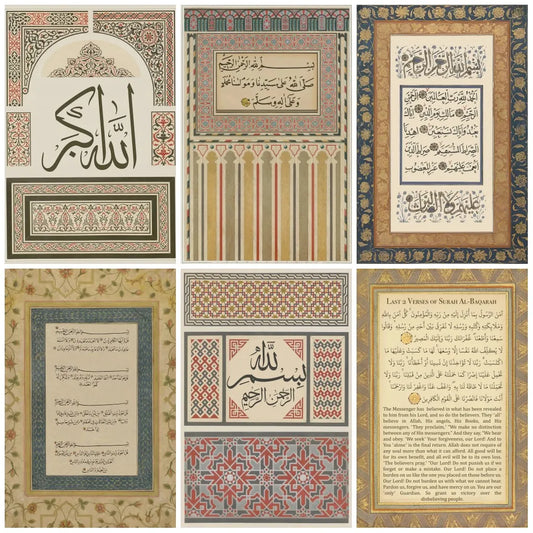 الله أكبر
بسم الله الرحمن الرحيم
صلى الله على سيدنا ومولانا محمد
وعلى آله وسلم
بسم الله الرحمن الرحيم
الحمد لله رب العالمين الرحمن
الرحيم مالك يوم الدين إياك
نعبد وإياك نستعين اهدنا
الصراط المستقيم صراط الذين
أنعمت عليهم غير المغضوب
عليهم ولا الضالين
بسم الله الرحمن الرحيم
بسم الله الرحمن الرحيم
بسم الله الرحمن الرحيم
بسم الله الرحمن الرحيم
بسم الله
الرحمن الرحيم
Last 2 Verses of Surah Al-Baqarah
آمَنَ الرَّسُولُ بِمَا أُنزِلَ إِلَيْهِ مِن رَّبِّهِ وَالْمُؤْمِنُونَ كُلٌّ آمَنَ بِاللَّهِ
وَمَلَائِكَتِهِ وَكُتُبِهِ وَرُسُلِهِ لَا نُفَرِّقُ بَيْنَ أَحَدٍ مِّن رُّسُلِهِ وَقَالُوا
سَمِعْنَا وَأَطَعْنَا غُفْرَانَكَ رَبَّنَا وَإِلَيْكَ الْمَصِيرُ
لَا يُكَلِّفُ اللَّهُ نَفْسًا إِلَّا وُسْعَهَا لَهَا مَا كَسَبَتْ وَعَلَيْهَا مَا
اكْتَسَبَتْ رَبَّنَا لَا تُؤَاخِذْنَا إِن نَّسِينَا أَوْ أَخْطَأْنَا رَبَّنَا وَلَا
تَحْمِلْ عَلَيْنَا إِصْرًا كَمَا حَمَلْتَهُ عَلَى الَّذِينَ مِن قَبْلِنَا رَبَّنَا وَلَا
تُحَمِّلْنَا مَا لَا طَاقَةَ لَنَا بِهِ وَاعْفُ عَنَّا وَاغْفِرْ لَنَا وَارْحَمْنَا
أَنتَ مَوْلَانَا فَانصُرْنَا عَلَى الْقَوْمِ الْكَافِرِينَ
The Messenger has believed in what has been revealed
to him from his Lord, and so do the believers. They 'all'
believe in Allah, His angels, His Books, and His
messengers. "They proclaim," "We make no distinction
between any of His messengers." And they say, "We hear
and obey. 'We seek' Your forgiveness, our Lord! And to
You 'alone' is the final return. Allah does not require of
any soul more than what it can afford. All good will be
for its own benefit, and all evil will be to its own loss.
'The believers pray,' "Our Lord! Do not punish us if we
forget or make a mistake. Our Lord! Do not place a
burden on us like the one you placed on those before us.
Our Lord! Do not burden us with what we cannot bear.
Pardon us, forgive us, and have mercy on us. You are our
'only' Guardian. So grant us victory over the
disbelieving people.